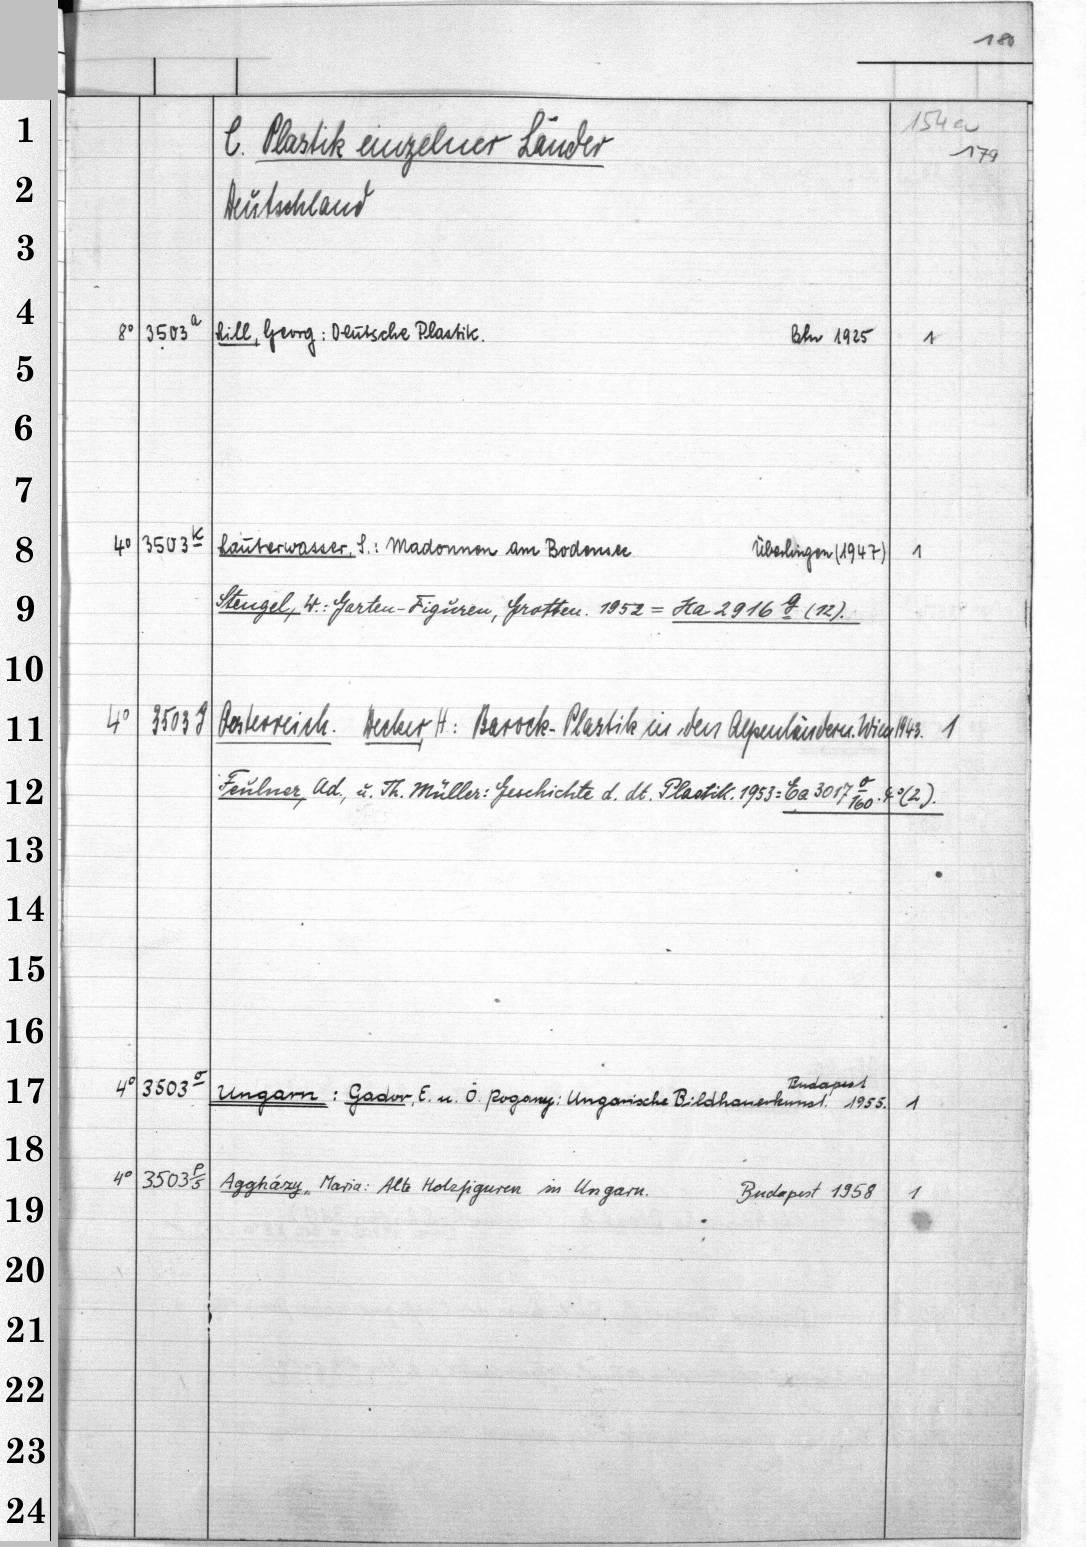 180
1 C. Plastik einzelner Länder 154a
179
2 Deutschland
3
4 8° 3503a Lill, Georg: Deutsche Plastik. Bln 1925 1
5
6
7
8 4° 3503k Lauterwasser, S.: Madonnen am Bodensee Überlingen (1947) 1
9 Stengel, W.: Garten-Figuren, Grotten. 1952 = Ha 2916 g (12).
10
11 4° 3503 Oesterreich. Decker, H: Barock-Plastik in den Alpenländern. Wien 1943. 1
12 Feulner, Ad., u. Th. Müller: Geschichte d. dt. Plastik. 1953 = Ea 3017 o/160. 4° (2).
13
14
15
16
17 4° 3503o Ungarn: Gador, E. u. Ö. Pogany: Ungarische Bildhauerkunst. Budapest 1955. 1
18
19 4° 3503p/5 Aggházy, Maria: Alte Holzfiguren in Ungarn. Budapest 1958 1
20
21
22
23
24